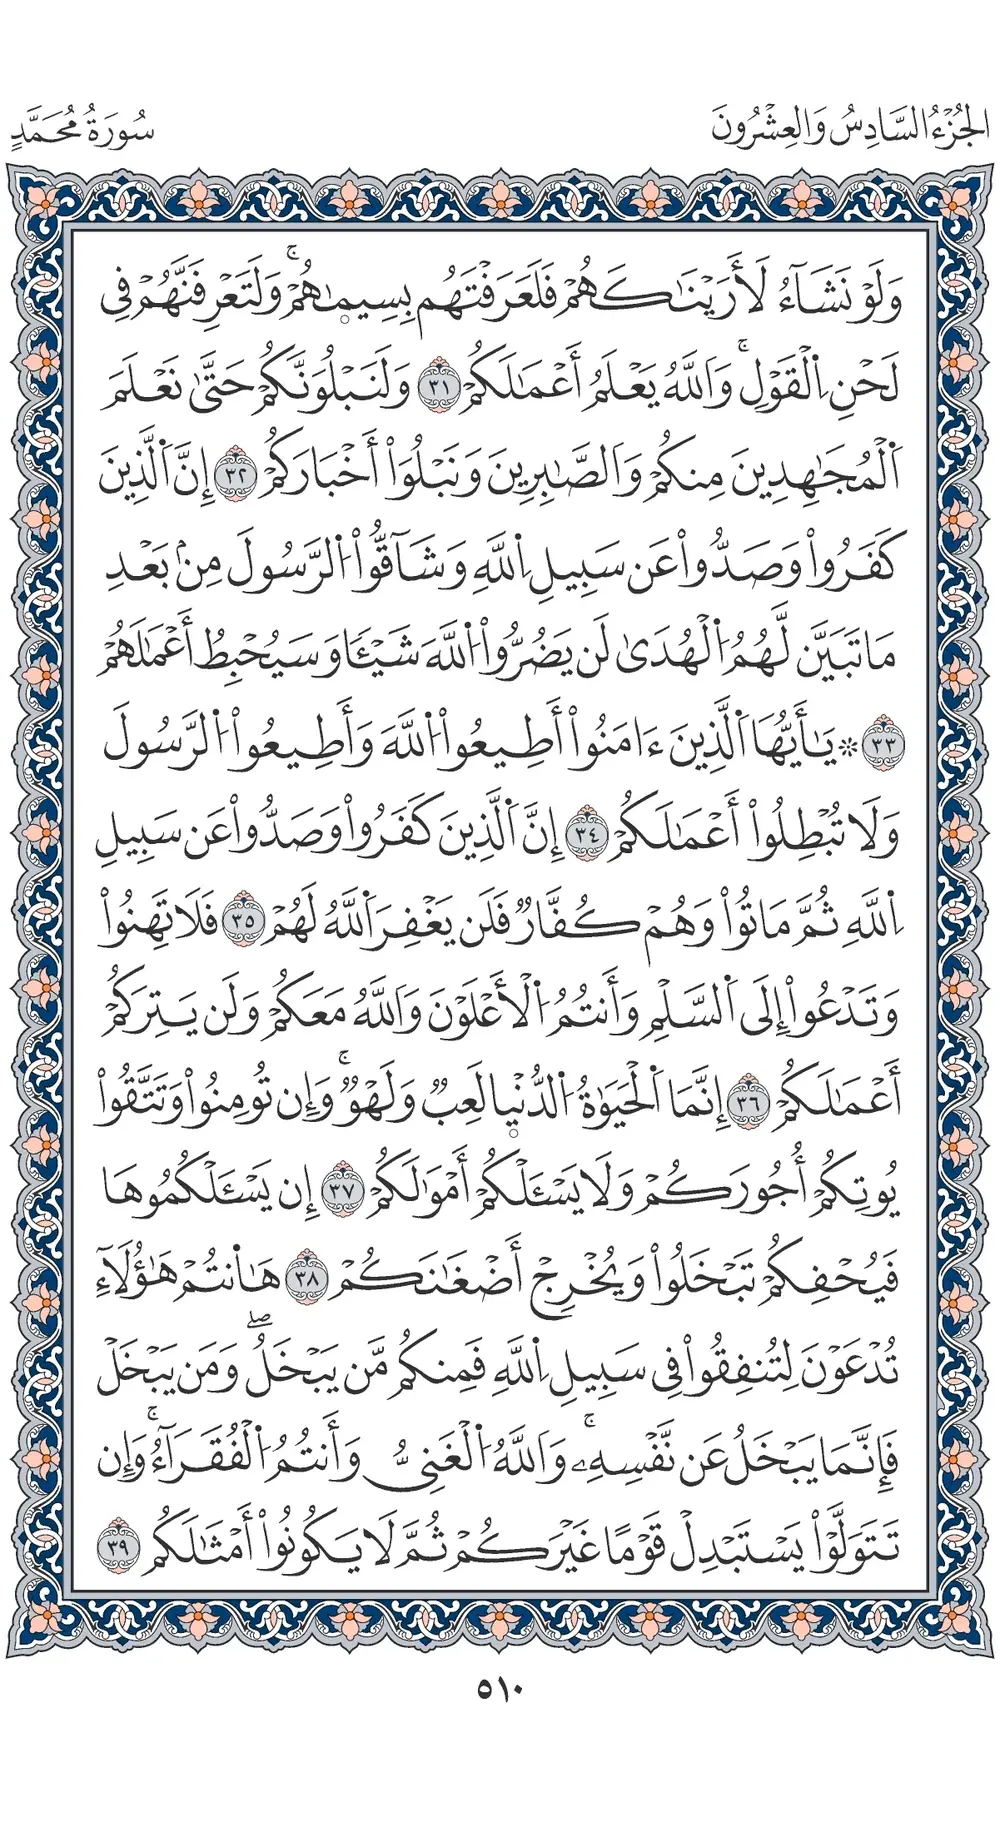 الجُزْءُ السَّادِسُ وَالعِشْرُونَ
سُورَةُ مُحَمَّدٍ
وَلَوْ نَشَآءُ لَأَرَيْنَٰكَهُمْ فَلَعَرَفْتَهُم بِسِيمَٰهُمْۚ وَلَتَعْرِفَنَّهُمْ فِى
لَحْنِ اِ۬لْقَوْلِۚ وَاللَّهُ يَعْلَمُ أَعْمَٰلَكُمْ ٣١ وَلَنَبْلُوَنَّكُمْ حَتَّىٰ نَعْلَمَ
اَ۬لْمُجَٰهِدِينَ مِنكُمْ وَالصَّٰبِرِينَ وَنَبْلُوَا۟ أَخْبَارَكُمْ ٣٢ إِنَّ اَ۬لَّذِينَ
كَفَرُوا۟ وَصَدُّوا۟ عَن سَبِيلِ اِ۬للَّهِ وَشَآقُّوا۟ اُ۬لرَّسُولَ مِنۢ بَعْدِ
مَا تَبَيَّنَ لَهُمُ اُ۬لْهُدَىٰ لَن يَضُرُّوا۟ اُ۬للَّهَ شَيْـًٔا وَسَيُحْبِطُ أَعْمَٰلَهُمْ
٣٣ ۞ يَٰٓأَيُّهَا اَ۬لَّذِينَ ءَامَنُوٓا۟ أَطِيعُوا۟ اُ۬للَّهَ وَأَطِيعُوا۟ اُ۬لرَّسُولَ
وَلَا تُبْطِلُوٓا۟ أَعْمَٰلَكُمْ ٣٤ إِنَّ اَ۬لَّذِينَ كَفَرُوا۟ وَصَدُّوا۟ عَن سَبِيلِ
اِ۬للَّهِ ثُمَّ مَاتُوا۟ وَهُمْ كُفَّارٌ فَلَن يَغْفِرَ اَ۬للَّهُ لَهُمْ ٣٥ فَلَا تَهِنُوا۟
وَتَدْعُوٓا۟ إِلَى اَ۬لسَّلْمِ وَأَنتُمُ اُ۬لْأَعْلَوْنَ وَاللَّهُ مَعَكُمْ وَلَن يَتِرَكُمْ
أَعْمَٰلَكُمْ ٣٦ إِنَّمَا اَ۬لْحَيَوٰةُ اُ۬لدُّنْيا لَعِبٌ وَلَهْوٌۚ وَإِن تُومِنُوا۟ وَتَتَّقُوا۟
يُوتِكُمْ أُجُورَكُمْ وَلَا يَسْـَٔلْكُمْ أَمْوَٰلَكُمْ ٣٧ إِن يَسْـَٔلْكُمُوهَا
فَيُحْفِكُمْ تَبْخَلُوا۟ وَيُخْرِجْ أَضْغَٰنَكُمْ ٣٨ هَاٰنتُمْ هَٰٓؤُلَآءِ
تُدْعَوْنَ لِتُنفِقُوا۟ فِى سَبِيلِ اِ۬للَّهِ فَمِنكُم مَّن يَبْخَلُۖ وَمَن يَبْخَلْ
فَإِنَّمَا يَبْخَلُ عَن نَّفْسِهِۦۚ وَاللَّهُ اُ۬لْغَنِىُّ وَأَنتُمُ اُ۬لْفُقَرَآءُۚ وَإِن
تَتَوَلَّوْا۟ يَسْتَبْدِلْ قَوْمًا غَيْرَكُمْ ثُمَّ لَا يَكُونُوٓا۟ أَمْثَٰلَكُم ٣٩
٥١٠